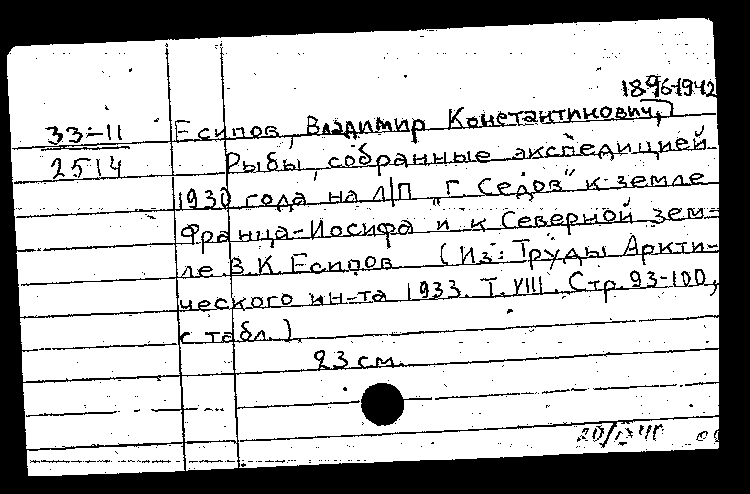 1896-1942
33-11 Есипов, Владимир Константинович,
2514 Рыбы, собранные экспедицией
1930 года на л/п „Г. Седов" к земле
Франца-Иосифа и к Северной зем-
ле В.К. Есипов (Из: Труды Аркти-
ческого ин-та 1933. Т. VIII. Стр. 93-100,
с табл.)
23 см.